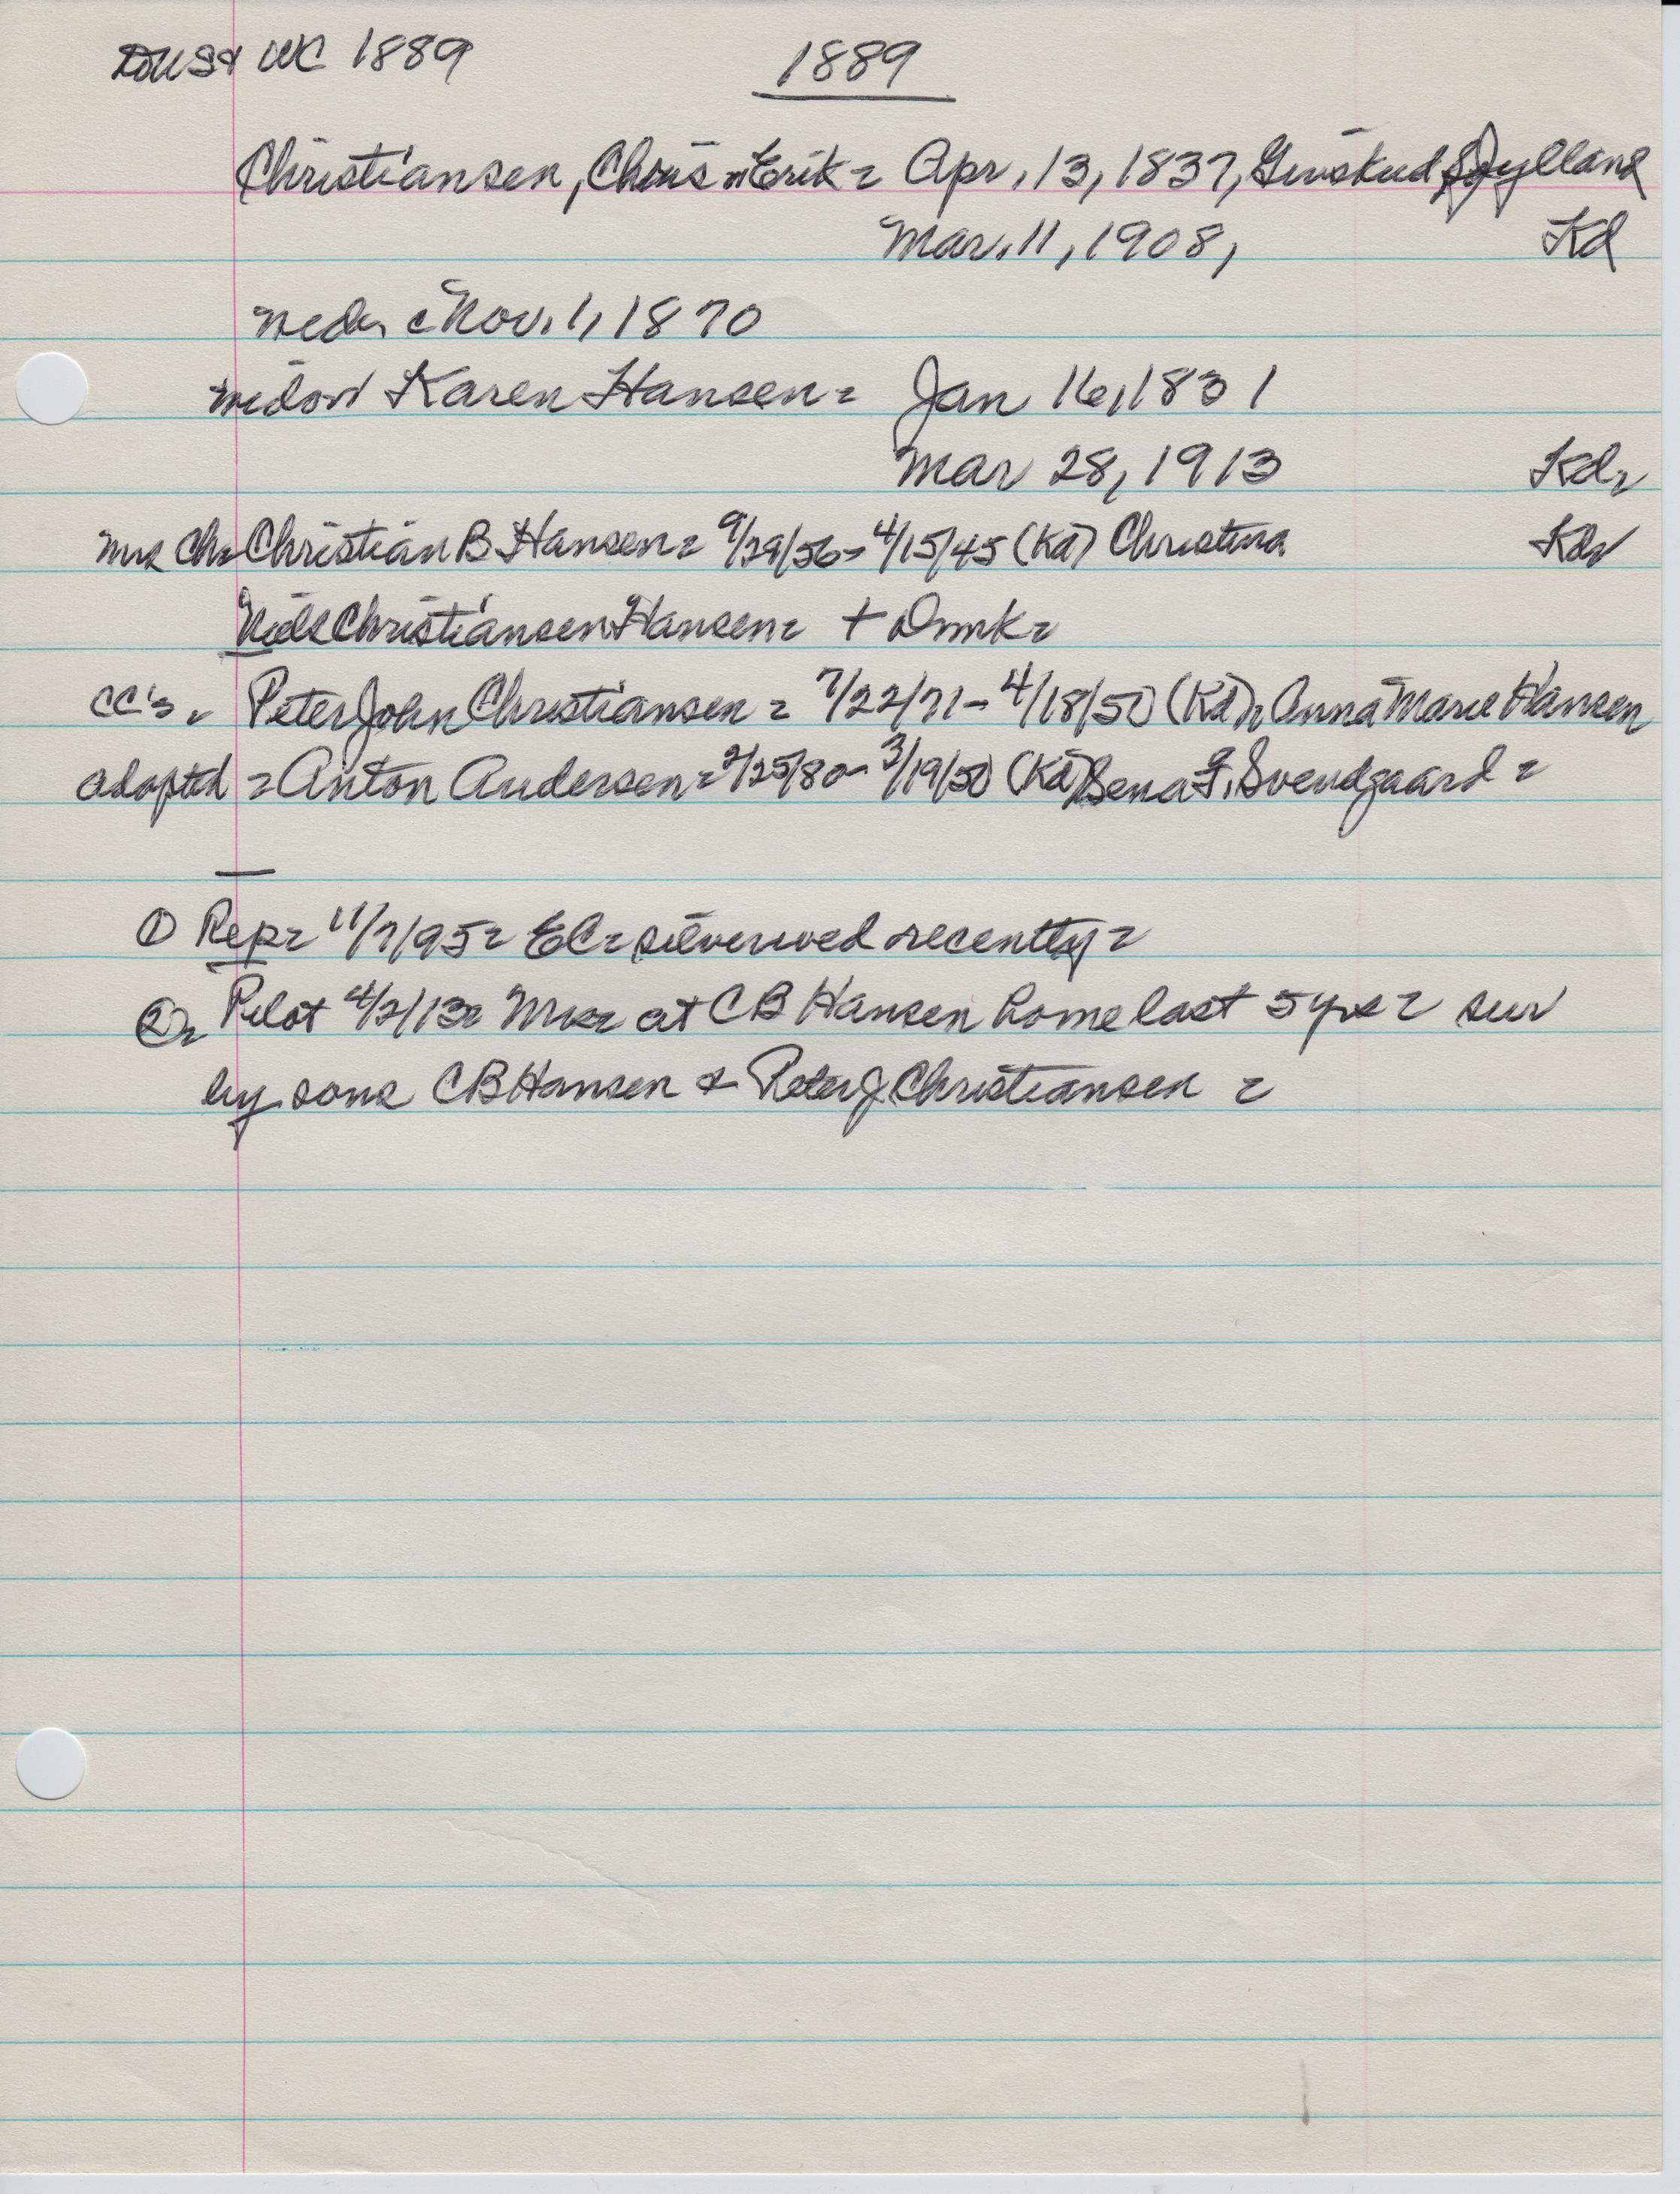 WC 1889 1889
Christiansen, Chris Erik = Apr. 13, 1837, Givskud Jylland
Mar. 11, 1908, Kd
wed. Nov. 1, 1870
widow Karen Hansen = Jan 16, 1831
Mar 28, 1913 Kd
Mrs Ch = Christian B Hansen = 9/29/56 - 4/15/45 (Kd) Christina Kd
Niels Christiansen Hansen = + Dnmk =
CC's. Peter John Christiansen = 7/22/71 - 4/18/50 (Kd) Anna Marie Hansen
adoptd = Anton Andersen = 2/25/80 - 3/19/50 (Kd) Sena F. Svendgaard =
—
① Rep = 11/7/95 = EC = silverwed recently =
② Pilot 4/2/13 = Mrs = at CB Hansen home last 5 yrs = sur
by sons CB Hansen & Peter J Christiansen =